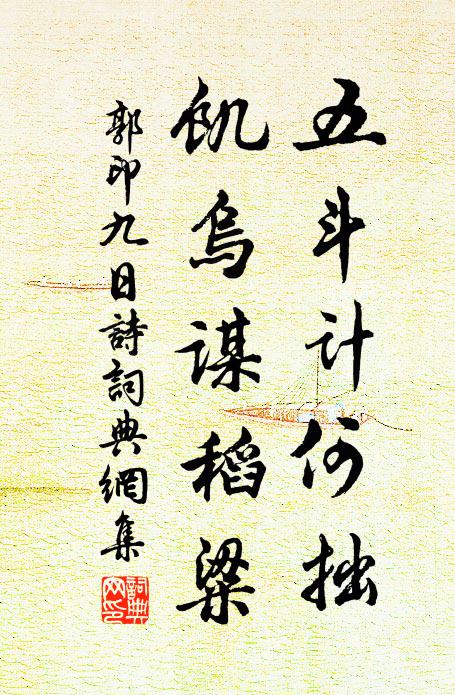 五斗计何拙
飢烏谋稻粱
郭印九日詩詞典網集
詞典网印